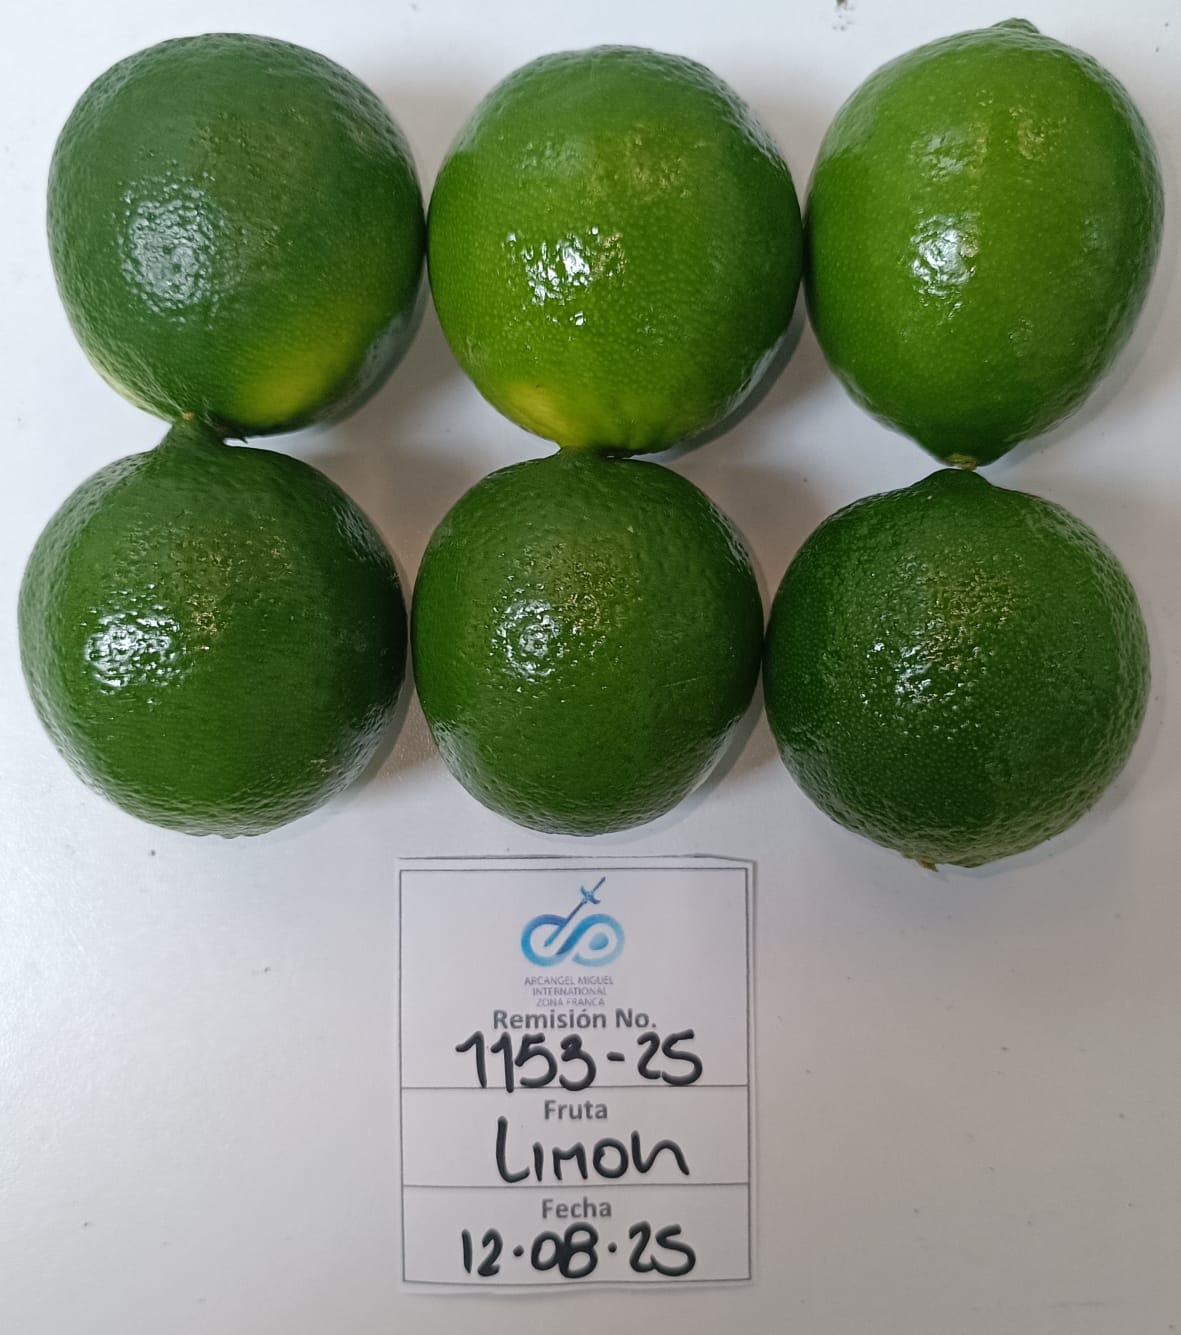 ARCANGEL MIGUEL
INTERNATIONAL
ZONA FRANCA
Remisión No.
1153-25
Fruta
Limon
Fecha
12.08.25